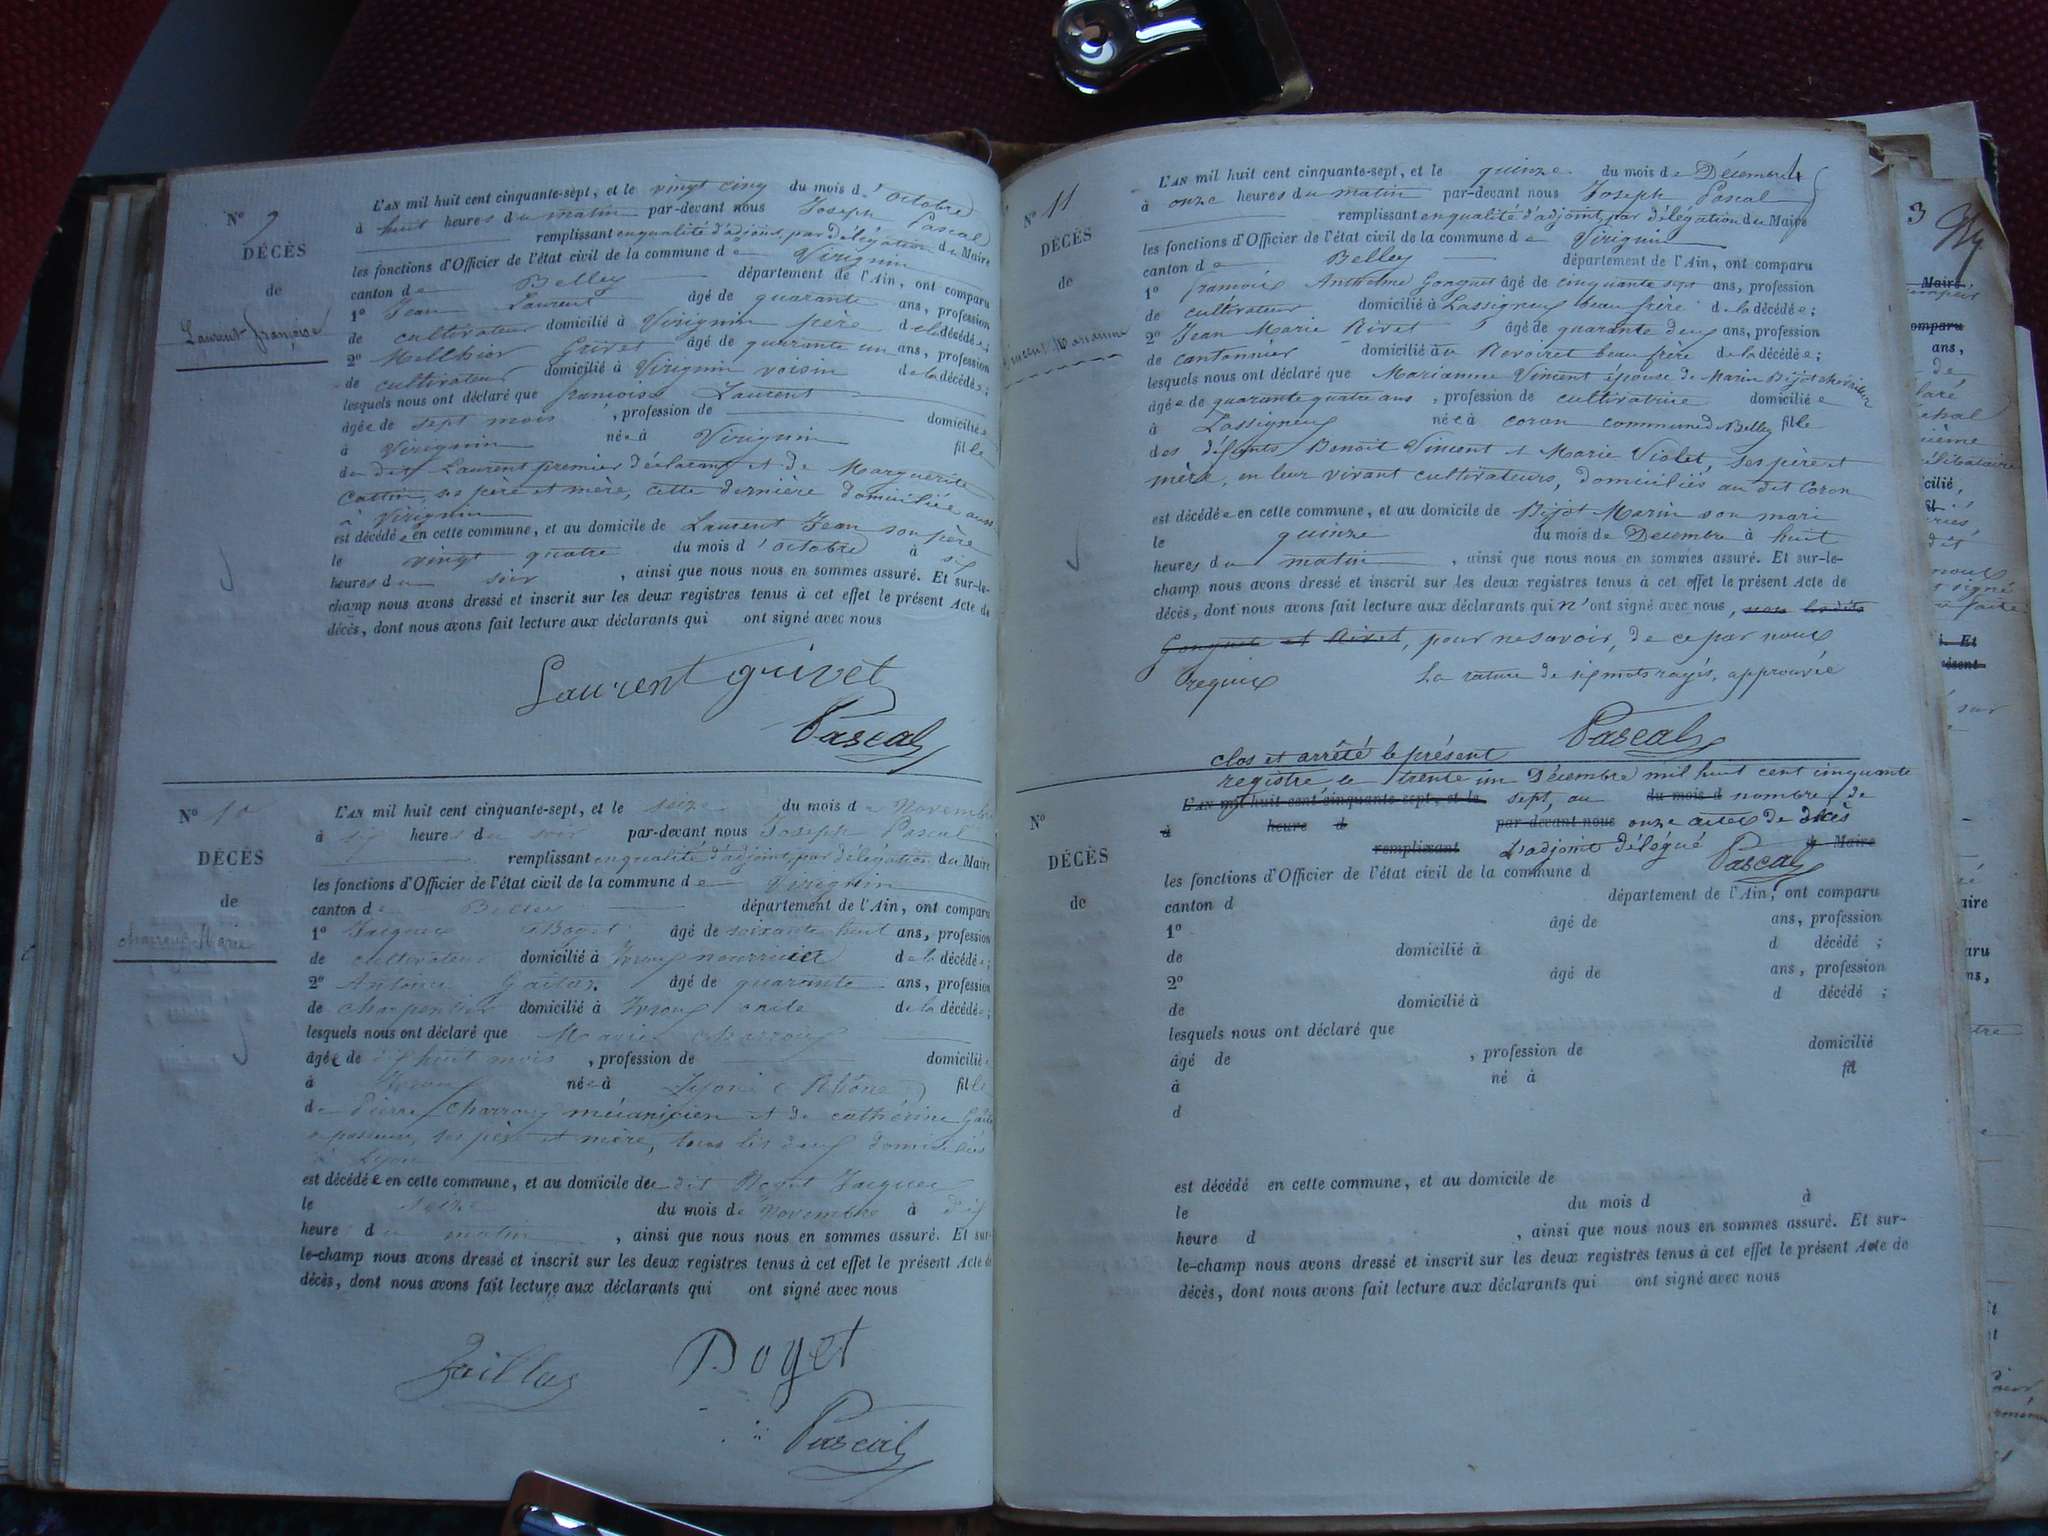 N° 9
DÉCÈS
de
Laurent françoise
L'AN mil huit cent cinquante-sept, et le vingt cinq du mois d'octobre
à huit heures du matin par-devant nous Joseph Pascal
remplissant en qualité d'adjoint, par délégation du Maire
les fonctions d'Officier de l'état civil de la commune de Virignin
canton de Belley département de l'Ain, ont comparu
1° Jean Laurent âgé de quarante ans, profession
de cultivateur domicilié à Virignin père de la décédée;
2° Melchior Grivet âgé de quarante un ans, profession
de cultivateur domicilié à Virignin voisin de la décédée;
lesquels nous ont déclaré que françoise Laurent
âgée de sept mois, profession de domiciliée
à Virignin née à Virignin fille
du dit Laurent premier déclarant et de Marguerite
Cattin, ses père et mère, cette dernière domiciliée aussi
à Virignin
est décédée en cette commune, et au domicile de Laurent Jean son père
le vingt quatre du mois d'octobre à six
heures du soir, ainsi que nous nous en sommes assuré. Et sur-le-
champ nous avons dressé et inscrit sur les deux registres tenus à cet effet le présent Acte de
décès, dont nous avons fait lecture aux déclarants qui ont signé avec nous
Laurent grivet
Pascal
N° 10
DÉCÈS
de
Marie
L'AN mil huit cent cinquante-sept, et le seize du mois de Novembre
à six heures du soir par-devant nous Joseph Pascal
remplissant en qualité d'adjoint, par délégation du Maire
les fonctions d'Officier de l'état civil de la commune de Virignin
canton de Belley département de l'Ain, ont comparu
1° Jacques âgé de soixante huit ans, profession
de cultivateur domicilié à nourricier de la décédée;
2° Antoine âgé de quarante ans, profession
de charpentier domicilié à de la décédée;
lesquels nous ont déclaré que Marie
âgée de huit mois, profession de domiciliée
à née à Lyon (Rhône) fille
de Pierre mécanicien et de cathérine
ses père et mère, tous les deux domiciliés
à Lyon
est décédée en cette commune, et au domicile du dit Jacques
le seize du mois de Novembre à dix
heure du matin, ainsi que nous nous en sommes assuré. Et sur-
le-champ nous avons dressé et inscrit sur les deux registres tenus à cet effet le présent Acte de
décès, dont nous avons fait lecture aux déclarants qui ont signé avec nous
Pascal
N° 11
DÉCÈS
de
Vincent Marianne
L'AN mil huit cent cinquante-sept, et le quinze du mois de Décembre
à onze heures du matin par-devant nous Joseph Pascal
remplissant en qualité d'adjoint, par délégation du Maire
les fonctions d'Officier de l'état civil de la commune de Virignin
canton de Belley département de l'Ain, ont comparu
1° françois Anthelme Gonguet âgé de cinquante sept ans, profession
de cultivateur domicilié à Lassigneu beau frère de la décédée;
2° Jean Marie Rivet âgé de quarante deux ans, profession
de cantonnier domicilié au Revoiret beau frère de la décédée;
lesquels nous ont déclaré que Marianne Vincent épouse de Marin Bijot
âgée de quarante quatre ans, profession de cultivatrice domiciliée
à Lassigneu née à coron commune de Belley fille
des défunts Benoit Vincent et Marie Violet, ses père et
mère, en leur vivant cultivateurs, domiciliés au dit Coron
est décédée en cette commune, et au domicile de Bijot Marin son mari
le quinze du mois de Décembre à huit
heures du matin, ainsi que nous nous en sommes assuré. Et sur-le-
champ nous avons dressé et inscrit sur les deux registres tenus à cet effet le présent Acte de
décès, dont nous avons fait lecture aux déclarants qui n'ont signé avec nous, non les dits
Gonguet et Rivet, pour ne savoir, de ce par nous
requis La rature de six mots rayés, approuvée
Pascal
clos et arrêté le présent
registre le trente un Décembre mil huit cent cinquante
L'AN mil huit cent cinquante-sept, et le sept, au du mois d nombre de
à heure d par-devant nous onze actes de décès
remplissant L'adjoint délégué Pascal d Maire
N°
DÉCÈS
de
les fonctions d'Officier de l'état civil de la commune d
canton d département de l'Ain, ont comparu
1° âgé de ans, profession
de domicilié à d décédé ;
2° âgé de ans, profession
de domicilié à d décédé ;
lesquels nous ont déclaré que
âgé de , profession de domicilié
à né à fil
d
est décédé en cette commune, et au domicile de
le du mois d à
heure d , ainsi que nous nous en sommes assuré. Et sur-
le-champ nous avons dressé et inscrit sur les deux registres tenus à cet effet le présent Acte de
décès, dont nous avons fait lecture aux déclarants qui ont signé avec nous